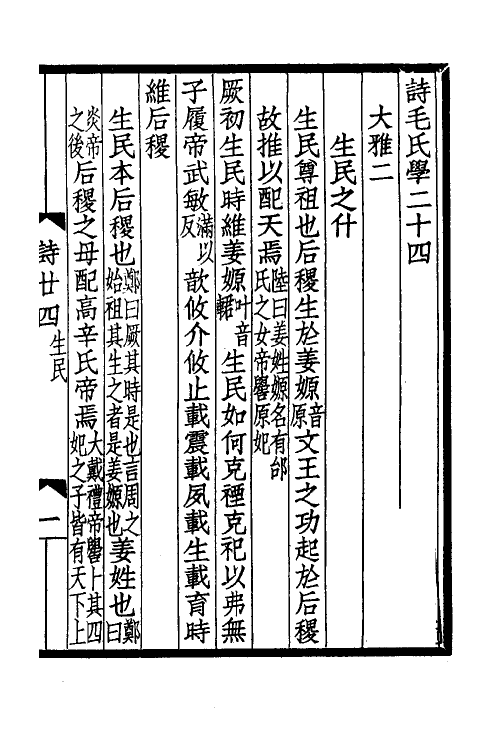 詩毛氏學二十四
大雅二
生民之什
生民尊祖也后稷生於姜嫄音原文王之功起於后稷
故推以配天焉陸曰姜姓嫄名有邰氏之女帝嚳原妃
厥初生民時維姜嫄叶音輑生民如何克禋克祀以弗無
子履帝武敏滿以反歆攸介攸止載震載夙載生載育時
維后稷
生民本后稷也鄭曰厥其時是也言周之始祖其生之者是姜嫄也姜姓也鄭曰
炎帝之後后稷之母配高辛氏帝焉大戴禮帝嚳卜其四妃之子皆有天下上
詩廿四 生民 一